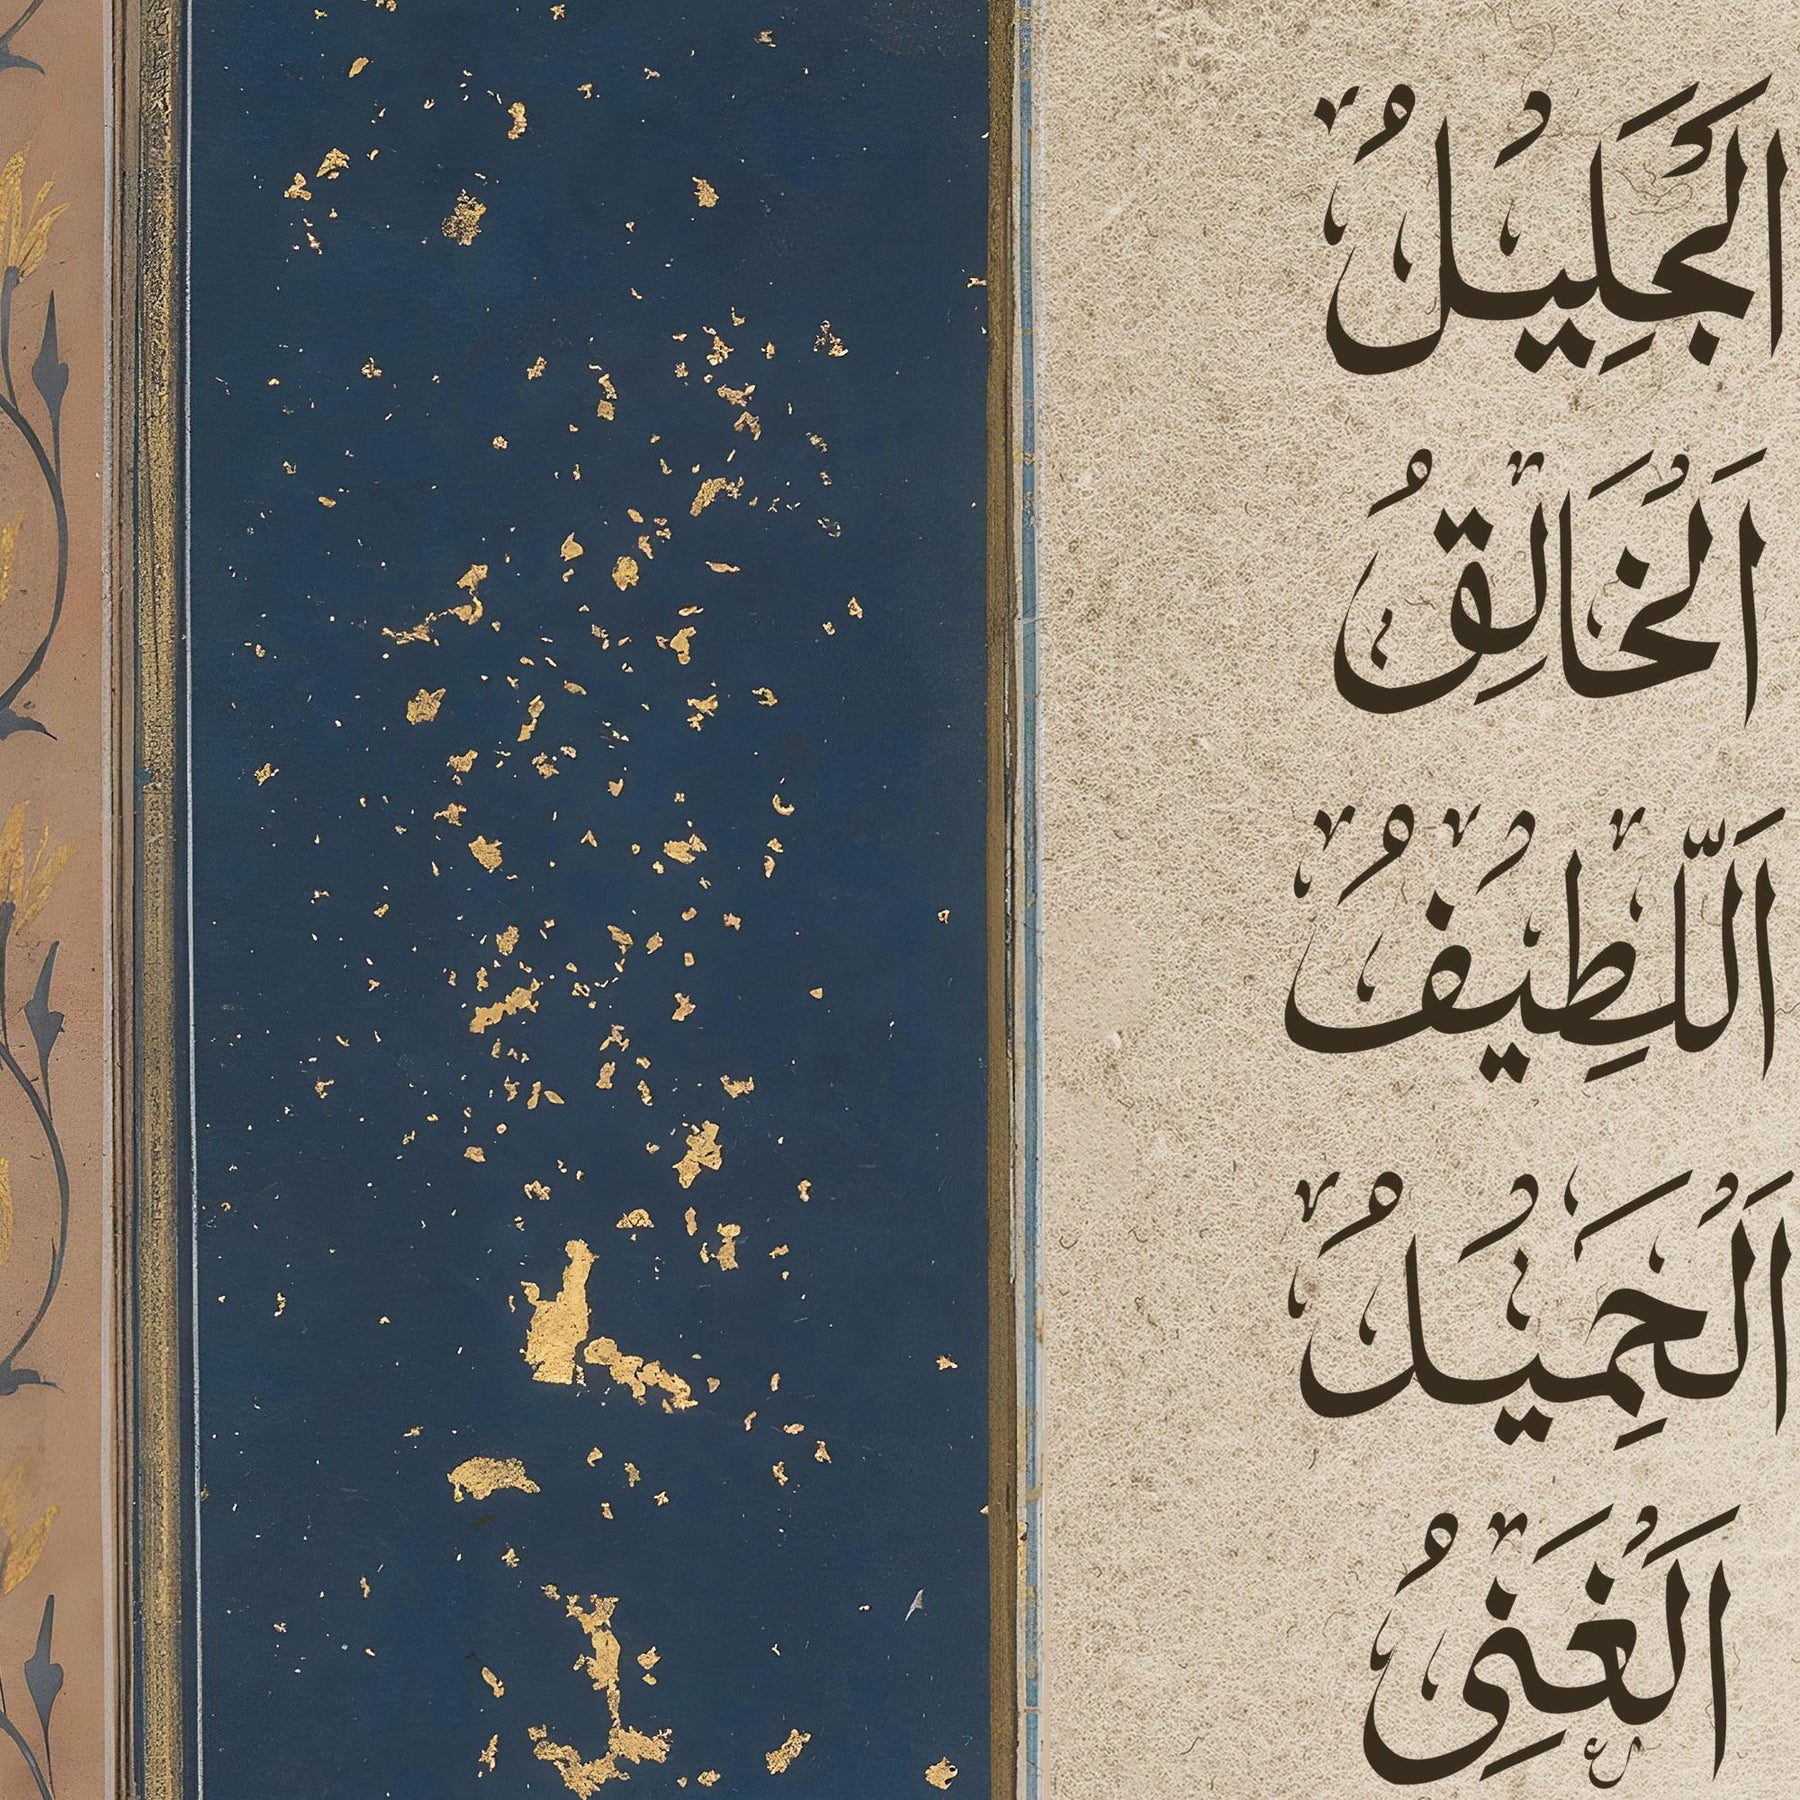 اَلْجَلِيلُ
اَلْخَالِقُ
اَللَّطِيفُ
اَلْحَمِيدُ
اَلْغَنِىُ